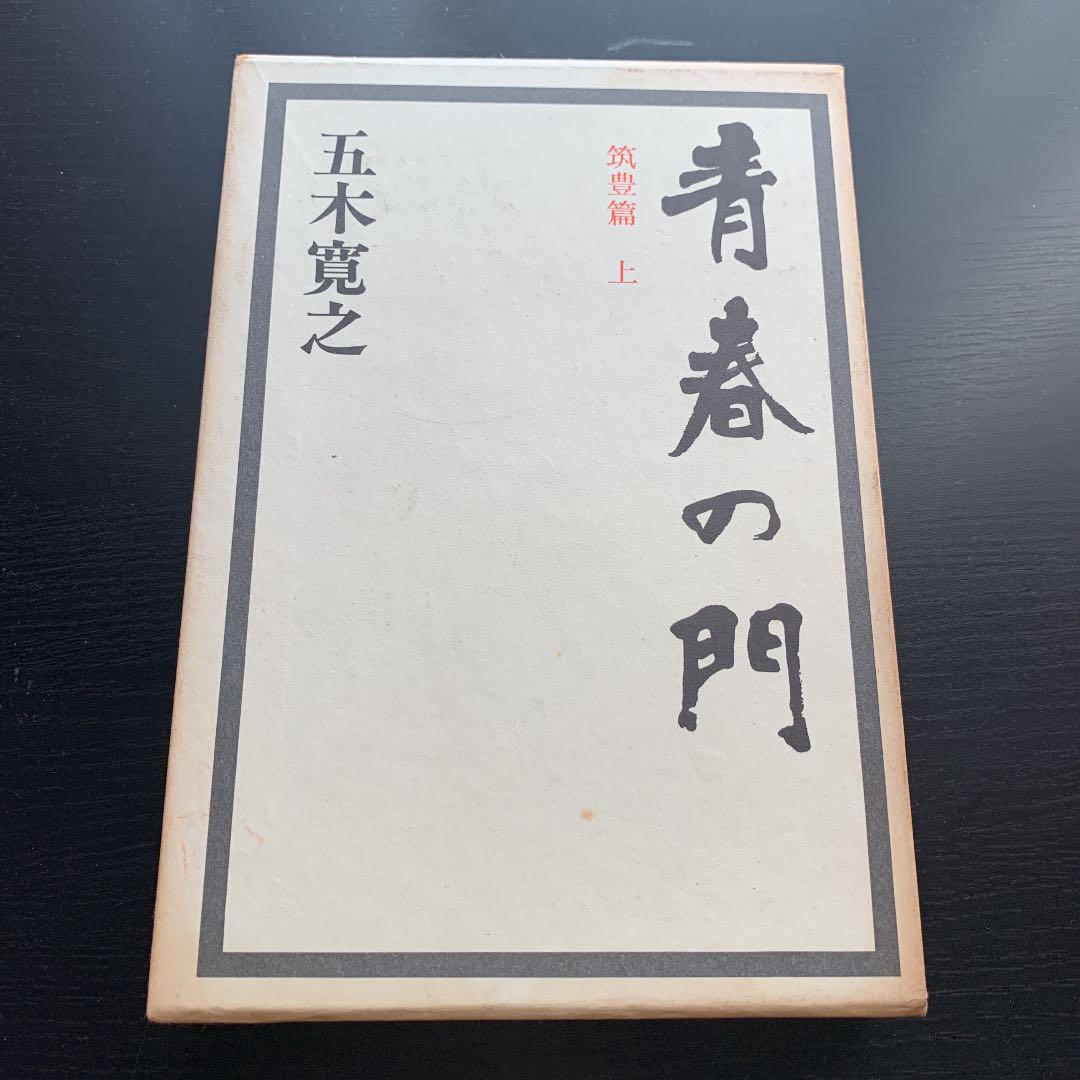 青春の門
筑豊篇 上
五木寛之